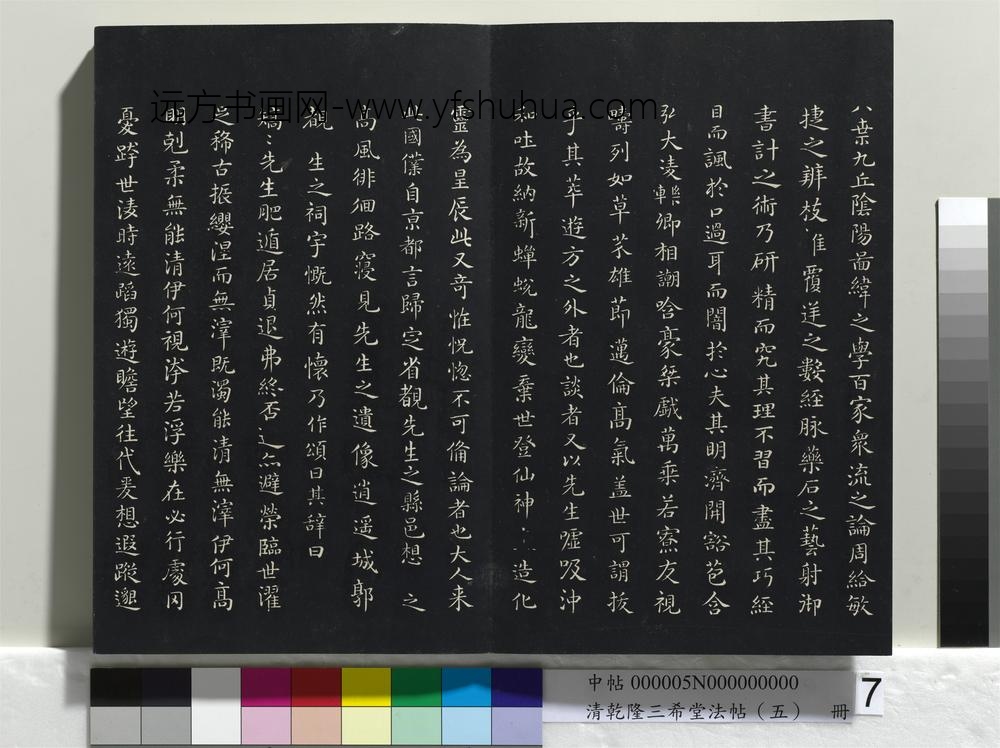 八索九丘隂陽啚緯之學百家衆流之論周給敏
捷之辨枝 覆逆之數經脉藥石之藝射御
書計之術乃研精而究其理不習而盡其巧經
目而諷於口過耳而闇於心夫其明濟開豁苞含
弘大淩轢卿相謿哈豪桀戲萬乘若寮友視
疇列如草芥雄莭邁倫髙氣盖世可謂拔
乎其萃遊方之外者也談者又以先生噓吸沖
和吐故納新蟬蛻龍變棄世登仙神 造化
靈為星辰此又奇恠怳惚不可俻論者也大人来
此國僕自京都言歸定省覩先生之縣邑想 之
髙風徘徊路寢見先生之遺像逍遥城郭
觀 生之祠宇慨然有懷乃作頌曰其辭曰
矯〻先生肥遁居貞退弗終否 亦避榮臨世濯
足稀古振纓涅而無滓既濁能清無滓伊何髙
朙剋柔無能清伊何視洿若浮樂在必行處冈
憂跨世淩時遠蹈獨遊瞻望往代爰想遐蹤邈
远方书画网-www.yfshuhua.com
中帖 000005N000000000
清乾隆三希堂法帖（五） 冊
7